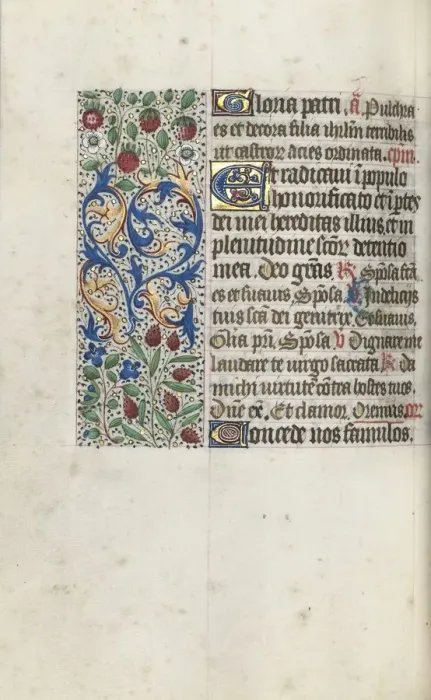 Gloria patri. añ Pulchra
es et decora filia iħrlm̄ terribilis
ut castror̄ acies ordinata. cp̄m.
Et radicaui ī populo
honorificato et ī p̄tes
dei mei hereditas illius et in
plenitudine scōr̄ detentio
mea. Deo grās R Spōsa
es et suauis, Spōsa. V In delicijs
tuis scā dei genitrix. Et suauis,
Glīa pri. Spōsa. V Dignare me
laudare te uirgo sacrata R Da
michi uirtutē cōtra hostes tuos.
Dn̄e ex̄. Et clamor. Oremus. or
Concede nos famulos.